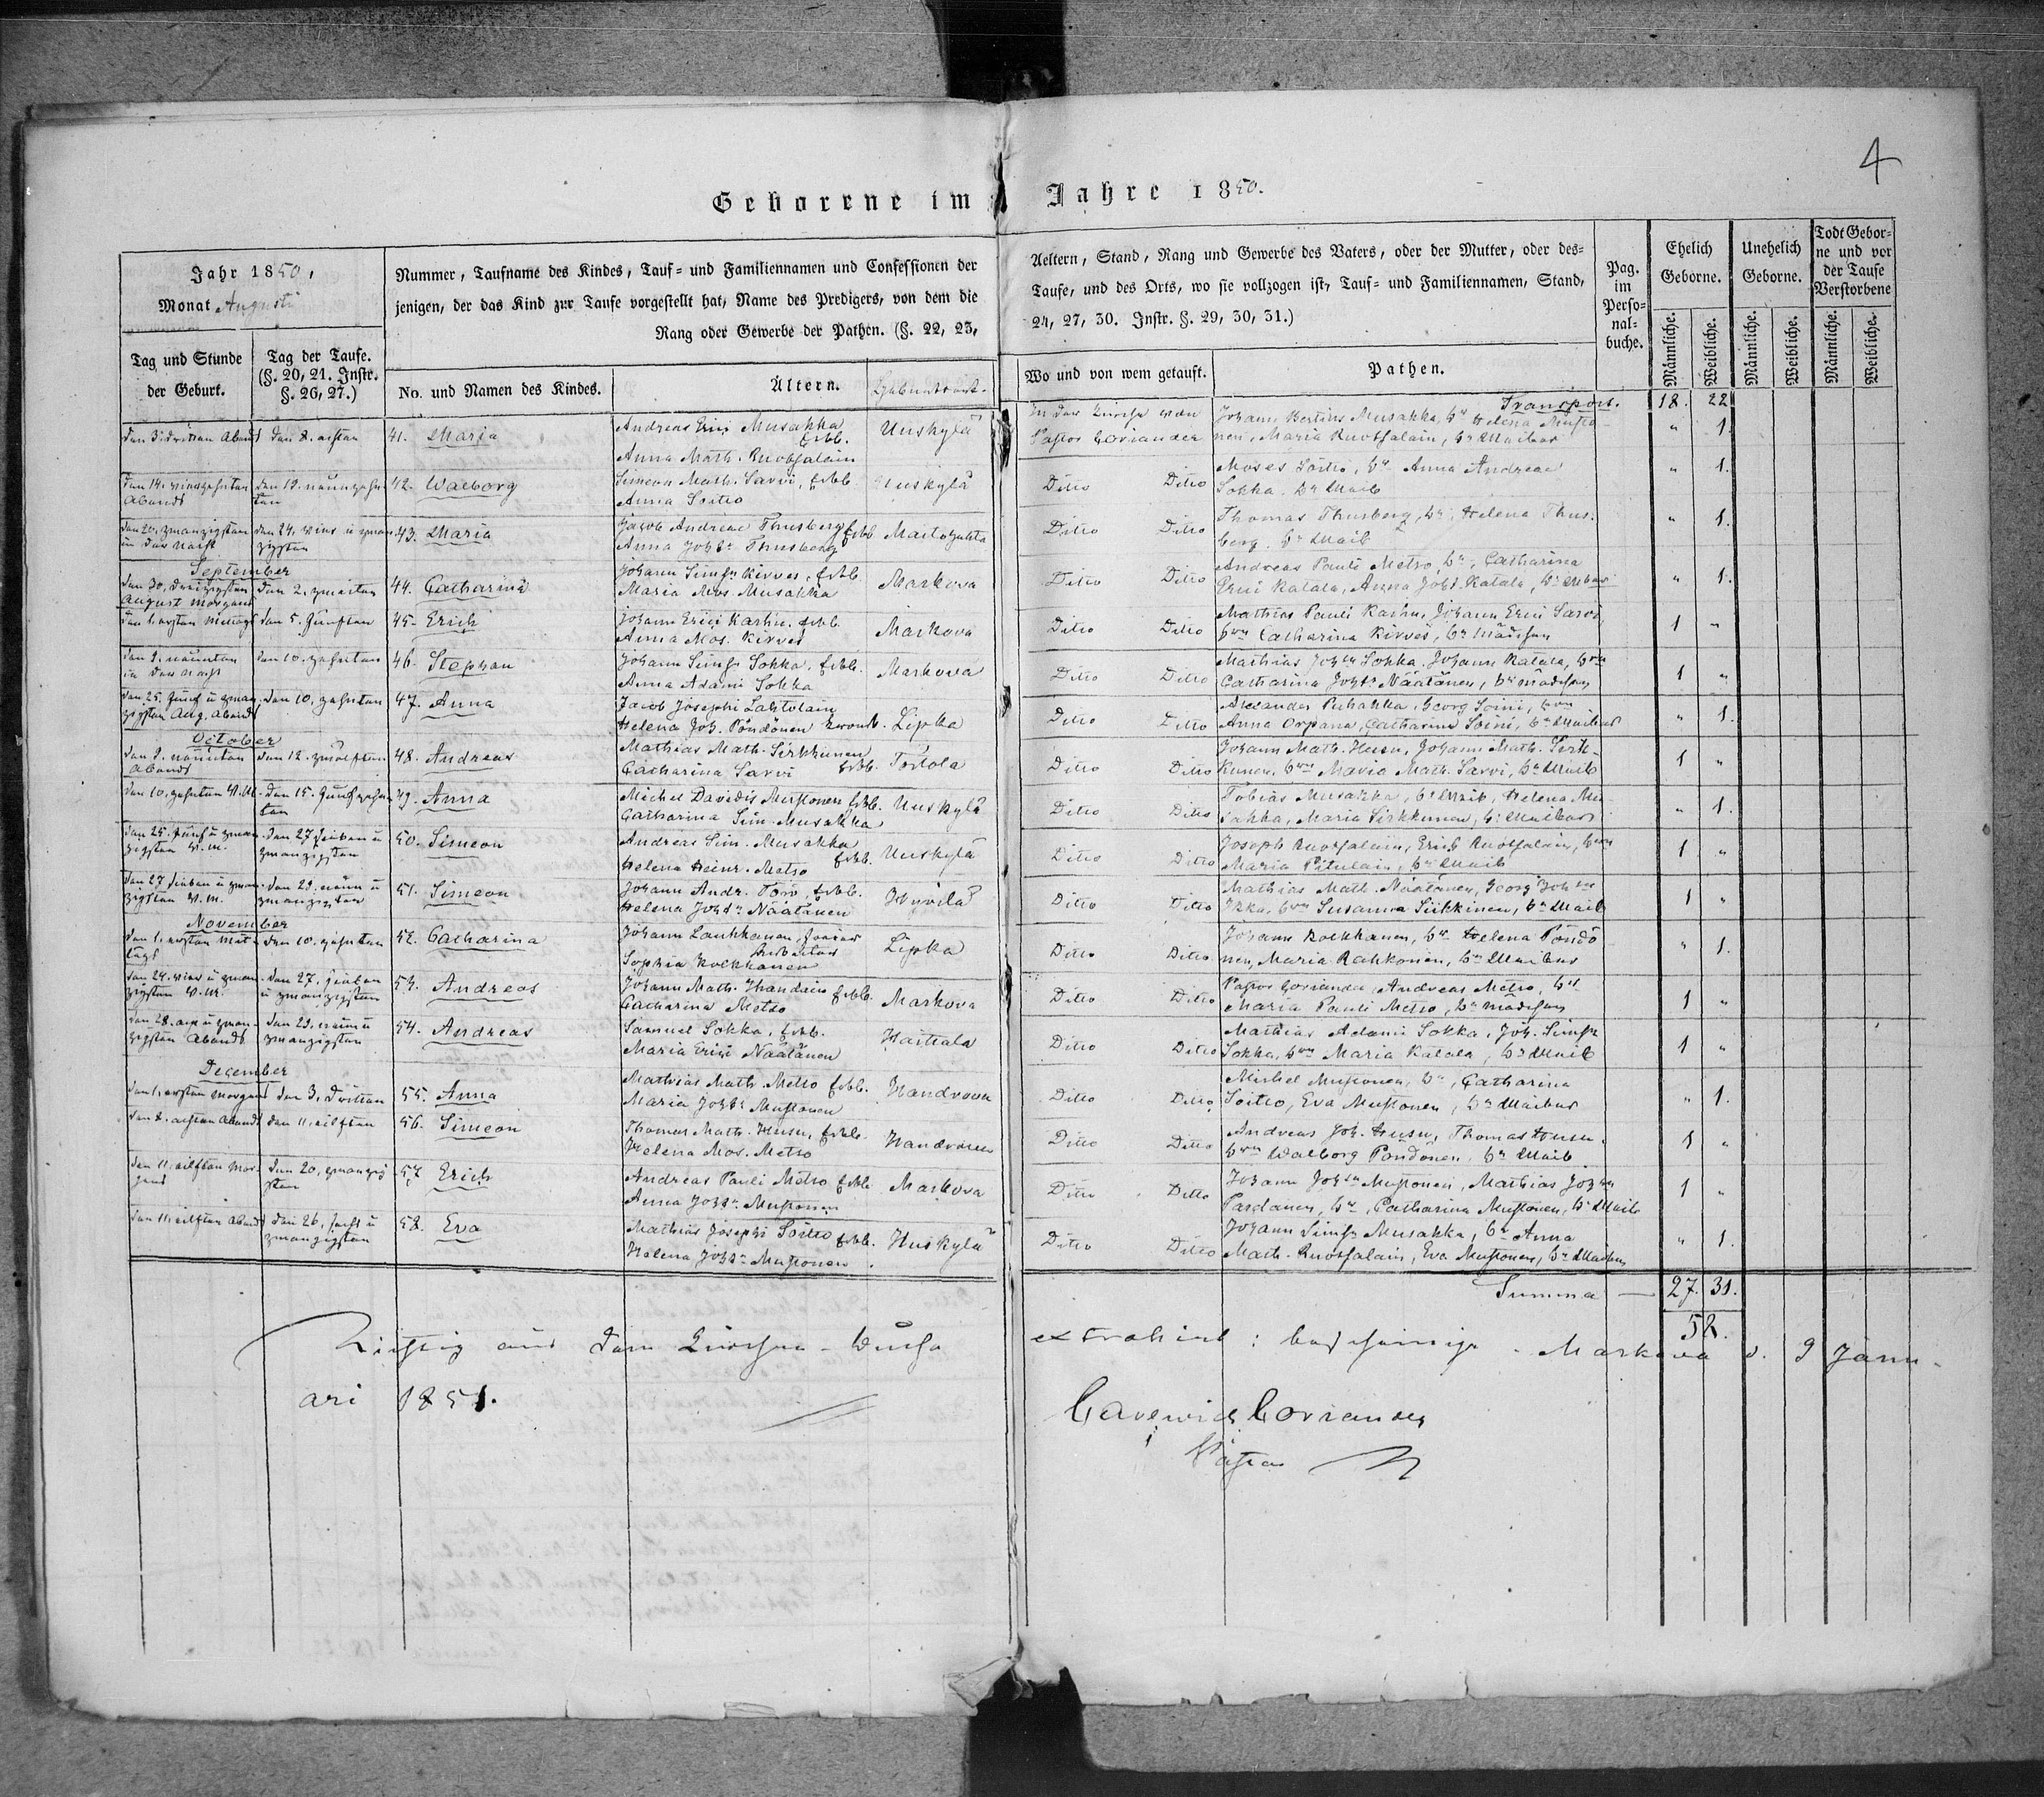 4
Geborene im Jahre 1850.
Jahr 1850,
Monat Augusti
Nummer, Taufname des Kindes, Tauf- und Familiennamen und Confessionen der
jenigen, der das Kind zur Taufe vorgestellt hat, Name des Predigers, von dem die
Rang oder Gewerbe der Pathen. (§. 22, 23,
Aeltern, Stand, Rang und Gewerbe des Vaters, oder der Mutter, oder des-
Taufe, und des Orts, wo sie vollzogen ist, Tauf- und Familiennamen, Stand,
24, 27, 30. Instr. §. 29, 30, 31.)
Pag. im Perso- nal- buche.
Ehelich Geborne.
Unehelich Geborne.
Todt Gebor- ne und vor der Taufe Verstorbene
Tag und Stunde der Geburt.
Tag der Taufe. (§. 20, 21. Instr. §. 26, 27.)
No. und Namen des Kindes.
Ältern.
Geburtsort.
Wo und von wem getauft.
Pathen.
Männliche. Weibliche. Männliche. Weibliche. Männliche. Weibliche.
Transport. 18. 22
den 3. dritten Abends den 8. achten 41. Maria
Andreas Erici Musakka Erbb.
Anna Math. Ruotsalain
Uuskylä
In der Kirche von Pastor Coriander
Johann Bertils Musakka, Helena Musto-
nen, Maria Ruotsalain, Weiber
" 1.
den 14. vierzehnten Abends den 19. neunzehn ten 42. Walborg
Simeon Math. Savvi, Erbb.
Anna Soitto
Uuskylä
Ditto Ditto
Moses Soitto, Anna Andreae
Sokka. Weib
" 1.
den 20. zwanzigsten in der Nacht den 24. vier u zwan zigsten 43. Maria
Jacob Andreae Thusberg Erbb
Anna Johs Thusberg
Ditto Ditto
Thomas Thusberg, Helena Thus-
berg. Weib
" 1.
September
den 30. dreizigsten August Morgens den 2. zweiten 44. Catharina
Johann Kirves, Erbb.
Maria Mos. Musakka
Markova
Ditto Ditto
Andreas Pauli Metso, Catharina
Erici Katala, Anna Johs Katala, Weiber
" 1.
den 1. ersten Mittags den 5. Fünften 45. Erich
Johann Erici Karhu. Erbb.
Anna Mos. Kirves
Markova
Ditto Ditto
Mathias Pauli Karhu, Johann Erici Savvi
Catharina Kirves, Mädchen
1 "
den 9. neunten in der Nacht den 10. zehnten 46. Stephan
Johann Sokka, Erbb.
Anna Adami Sokka
Markova
Ditto Ditto
Mathias Sokka. Johann Katala,
Catharina Johs Näätänen, Mädchen
1 "
den 25. Fünf u zwan zigsten Aug. Abends den 10. zehnten 47. Anna
Jacob Josephi Lahtolain
Helena Joh. Pöndönen Kronb. Lipka
Ditto Ditto
Alexander Puhakka, Georg Soini,
Anna Orpana, Catharina Soini, Weiber
" 1.
October
den 9. neunten Abends den 12. zwölften 48. Andreas
Mathias Math. Sirkkunen
Catharina Savvi Erbb.
Toitola
Ditto Ditto
Johann Math. Husu, Johann Math. Sirk-
kunen, Maria Math. Savvi, Weib
1 "
den 10. zehnten V.M. den 15. Fünfzehn ten 49. Anna
Michel Davidis Mustonen Erbb.
Catharina Sim. Musakka
Uuskylä
Ditto Ditto
Tobias Musakka, Weib, Helena Mu-
sakka, Maria Sirkkunen, Weiber
" 1.
den 25. Fünf u zwan zigsten V.M. den 27. Sieben u zwanzigsten 50. Simeon
Andreas Sim. Musakka
Helena Heinr. Metso Erbb.
Uuskylä
Ditto Ditto
Joseph Ruotsalain, Erich Ruotsalain,
Maria Pitulain, Weib
1 "
den 27. Sieben u zwan zigsten V.M. den 29. neun u zwanzigsten 51. Simeon
Johann Andr. Toro, Erbb.
Helena Johs Näätänen
Ditto Ditto
Mathias Math. Näätänen, Georg
Susanna Siikkinen, Weib
1 "
November
den 1. ersten Mit tags den 10. zehnten 52. Catharina
Johann Laukkanen,
Sophia Kolkhanen
Lipka
Ditto Ditto
Johann Kolkhanen, Helena Pöndö-
nen, Maria Rahkonen, Weiber
" 1.
den 24. vier u zwan zigsten V.M. den 27. sieben u zwanzigsten 53. Andreas
Johann Math. Erbb.
Catharina Metso
Markova
Ditto Ditto
Pastor Coriander, Andreas Metso,
Maria Pauli Metso, Mädchen
1 "
den 28. acht u zwan- zigsten Abends den 29. neun u zwanzigsten 54. Andreas
Samuel Sokka, Erbb.
Maria Erici Näätänen
Ditto Ditto
Mathias Adami Sokka, Joh.
Sokka, Maria Katala, Weib
1 "
December
den 1. ersten Morgens den 3. dritten 55. Anna
Mathias Math. Metso Erbb.
Maria Johs Mustonen
Handrovu
Ditto Ditto
Michel Mustonen, Catharina
Soitto, Eva Mustonen, Weiber
" 1.
den 8. achten Abends den 11. eilften 56. Simeon
Thomas Math. Husu, Erbb.
Helena Mos. Metso
Handrovu
Ditto Ditto
Andreas Joh. Husu, Thomas Husu
Walborg Pöndönen, Weib
1 "
den 11. eilften Mor- gens den 20. zwanzig sten 57. Erich
Andreas Pauli Metso Erbb
Anna Johs Mustonen
Markova
Ditto Ditto
Johann Mustonen, Mathias
Pardanen, Catharina Mustonen, Weib
1 "
den 11. eilften Abends den 26. sechs u zwanzigsten 58. Eva
Mathias Josephi Soitto Erbb.
Helena Johs Mustonen
Uuskylä
Ditto Ditto
Johann Musakka, Anna
Math. Ruotsalain, Eva Mustonen, Weiber
" 1.
Summa — 27. 31.
58.
Richtig aus dem Kirchen-Buche extrahirt: bescheinige. Markova d. 9 Janu-
ari 1851.
Coriander
Pastor